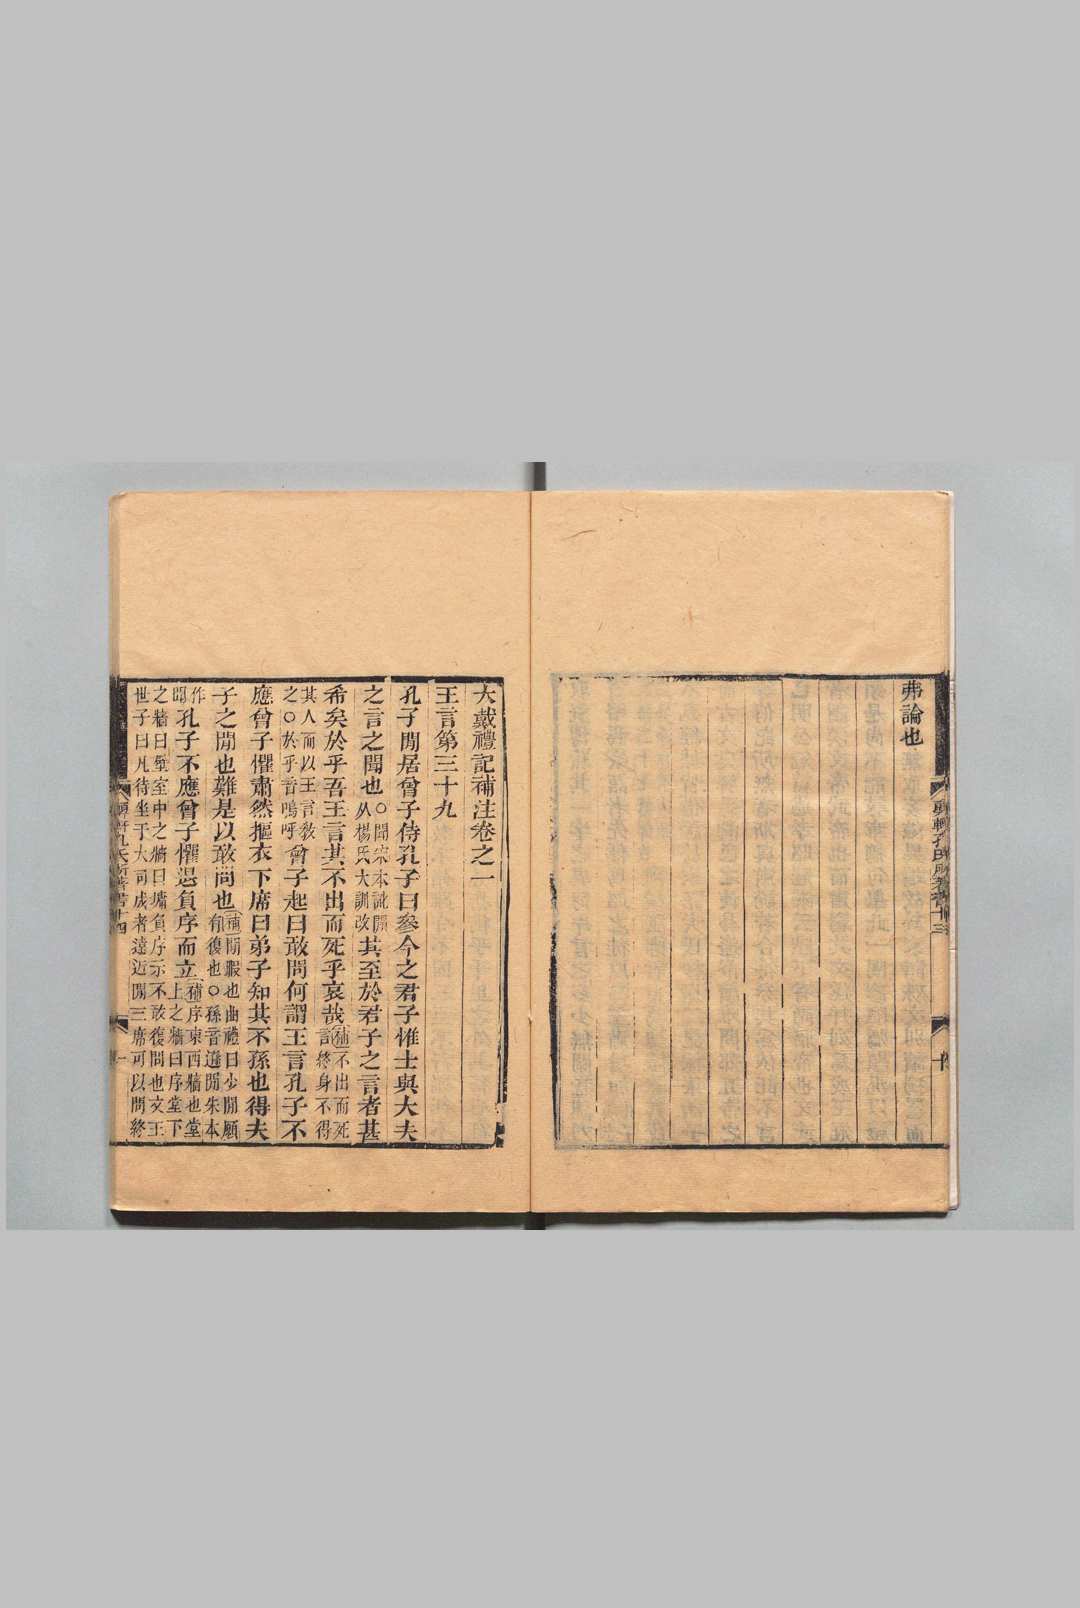 弗論也
顨軒孔氏所著書十三
大戴禮記補注卷之一
王言第三十九
孔子閒居曾子侍孔子曰參今之君子惟士與大夫
之言之聞也○聞宋本訛閒从楊氏大訓改其至於君子之言者甚
希矣於乎吾王言其不出而死乎哀哉補不出而死言終身不得
其人而以王言教之○於乎音嗚呼曾子起曰敢問何謂王言孔子不
應曾子懼肅然摳衣下席曰弟子知其不孫也得夫
子之閒也難是以敢問也補閒暇也曲禮曰少閒願有復也○孫音遜閒朱本
作閒孔子不應曾子懼退負序而立補序東西牆也堂上之牆曰序堂下
之牆曰壁室中之牆曰墉負序示不敢復問也文王
世子曰凡侍坐于大司成者遠近閒三席可以問終
顨軒孔氏所著書十四
一